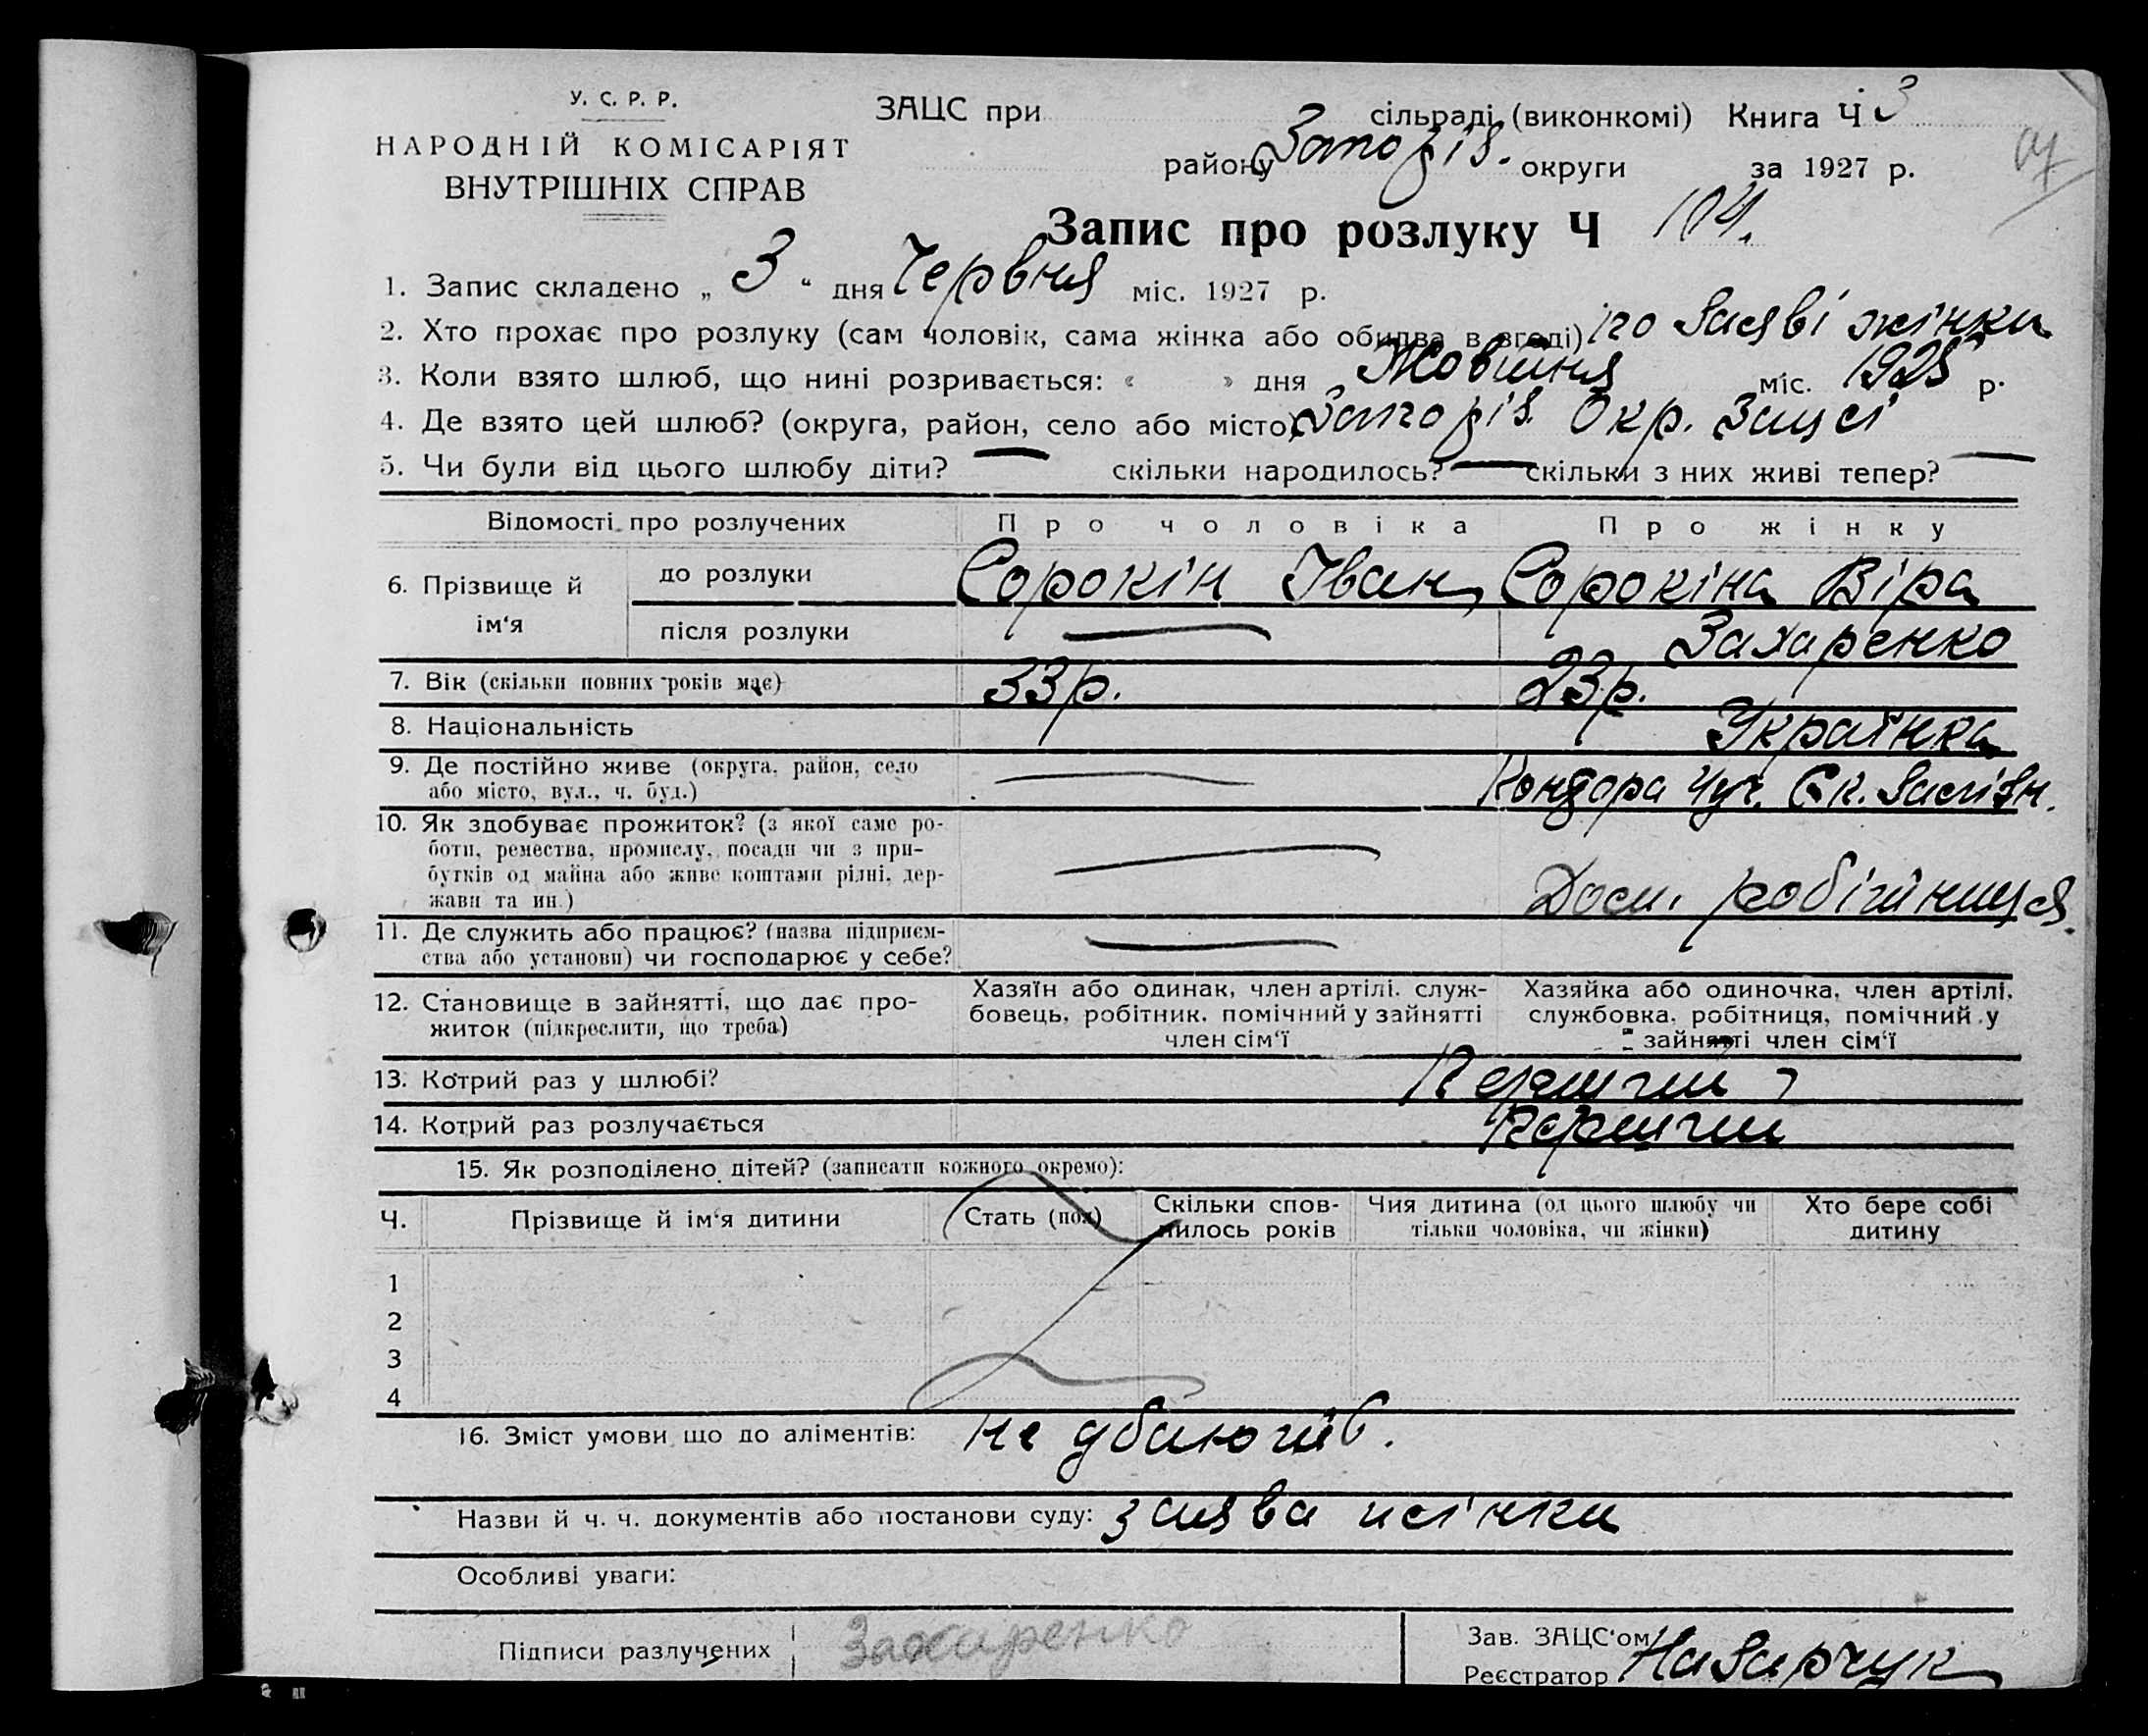 У. С. Р. Р.
НАРОДНІЙ КОМІСАРІЯТ
ВНУТРІШНІХ СПРАВ
ЗАЦС при сільраді (виконкомі) Книга Ч 3
району Запоріз. округи за 1927 р.
Запис про розлуку Ч 104.
1. Запис складено „ 3 “ дня Червня міс. 1927 р.
2. Хто прохає про розлуку (сам чоловік, сама жінка або обидва в згоді) по заяві жінки
3. Коли взято шлюб, що нині розривається: « » дня Жовтня міс. 1925 р.
4. Де взято цей шлюб? (округа, район, село або місто) Запоріз. Окр. Зацсі
5. Чи були від цього шлюбу діти? — скільки народилось? — скільки з них живі тепер? —
Відомості про розлучених Про чоловіка Про жінку
6. Прізвище й ім'я до розлуки Сорокін Іван, Сорокіна Віра
після розлуки — Захаренко
7. Вік (скільки повних років має) 33 р. 23 р.
8. Національність Українка
9. Де постійно живе (округа, район, село
або місто, вул., ч. буд.) —
10. Як здобуває прожиток? (з якої саме ро-
боти, ремества, промислу, посади чи з при-
бутків од майна або живе коштами рідні, дер-
жави та ин.) — Дом. робітниця.
11. Де служить або працює? (назва підприєм-
ства або установи) чи господарює у себе? —
12. Становище в зайнятті, що дає про-
житок (підкреслити, що треба)
Хазяїн або одинак, член артілі, служ-
бовець, робітник, помічний у зайнятті
член сім'ї
Хазяйка або одиночка, член артілі,
службовка, робітниця, помічний у
зайнятті член сім'ї
13. Котрий раз у шлюбі? Перший
14. Котрий раз розлучається Перший
15. Як розподілено дітей? (записати кожного окремо):
Ч. Прізвище й ім'я дитини Стать (пол) Скільки спов-
нилось років Чия дитина (од цього шлюбу чи
тільки чоловіка, чи жінки) Хто бере собі
дитину
1
2
3
4
16. Зміст умови що до аліментів: не
Назви й ч. ч. документів або постанови суду: заява жінки
Особливі уваги:
Підписи разлучених Захаренко
Зав. ЗАЦС'ом
Реєстратор Назарчук